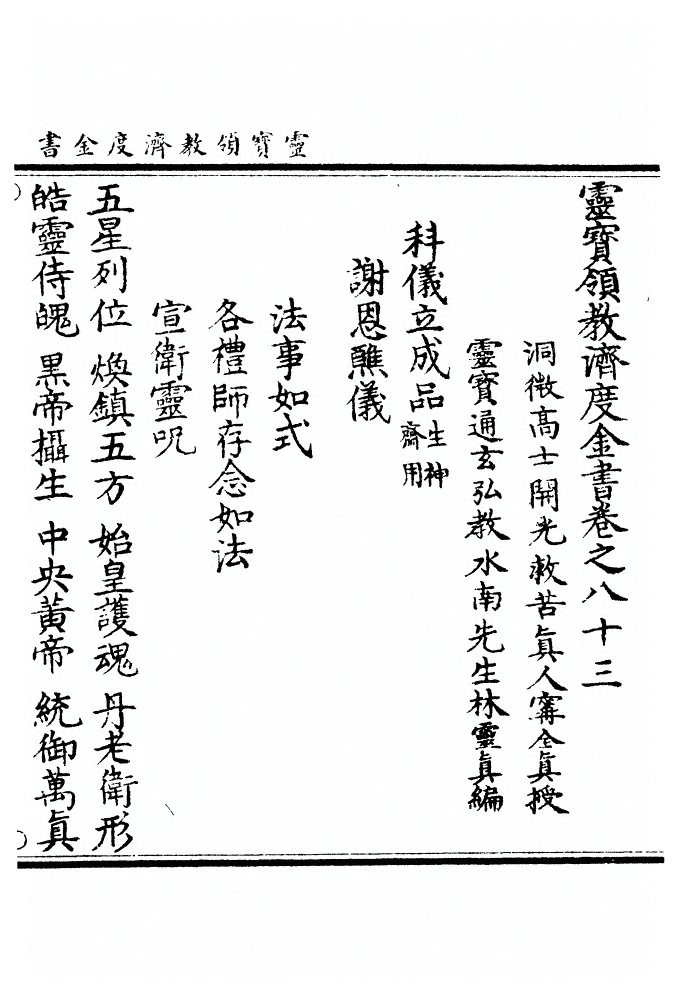 靈寶領教濟度金書
靈寶領教濟度金書卷之八十三
洞微高士開光救苦眞人甯全眞授
靈寶通玄弘教水南先生林靈眞編
科儀立成品生神齋用
謝恩醮儀
法事如式
各禮師存念如法
宣衛靈呪
五星列位 煥鎮五方 始皇護魂 丹老衛形
皓靈侍魄 黑帝攝生 中央黃帝 統御萬眞